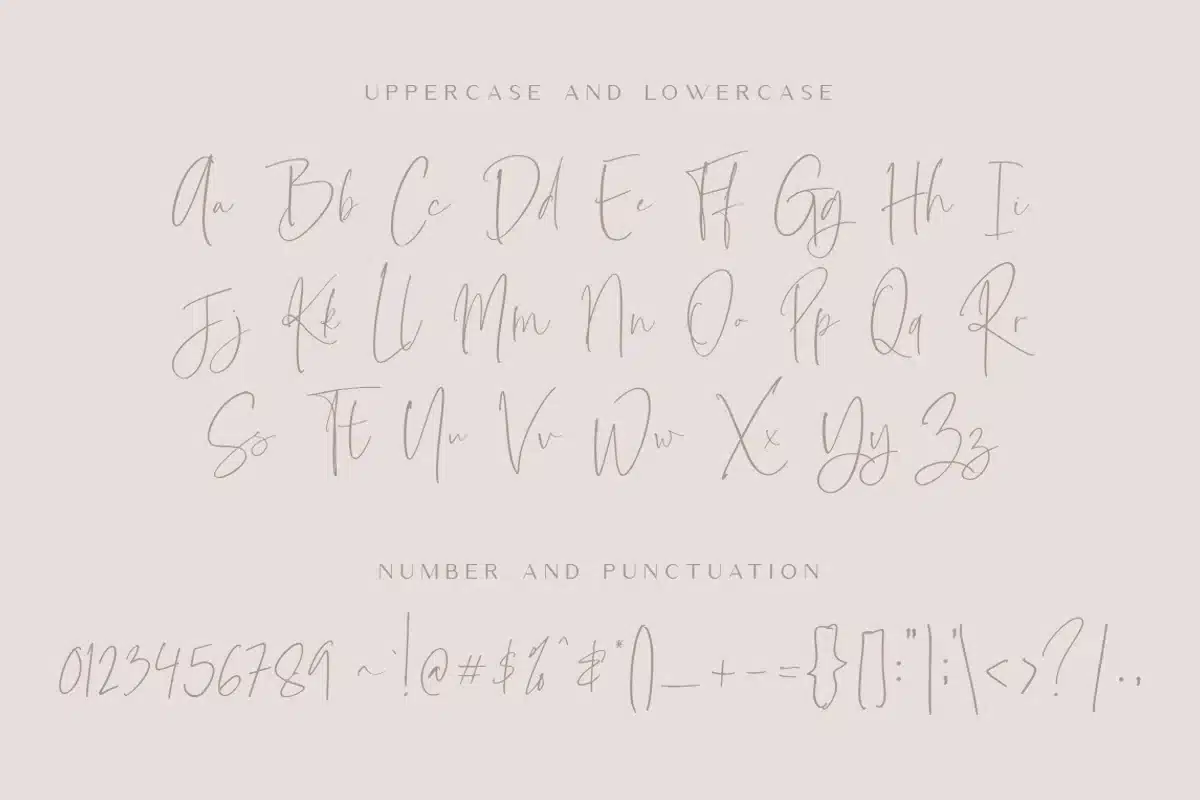 UPPERCASE AND LOWERCASE
Aa Bb Cc Dd Ee Ff Gg Hh Ii
Jj Kk Ll Mm Nn Oo Pp Qq Rr
Ss Tt Uu Vv Ww Xx Yy Zz
NUMBER AND PUNCTUATION
0123456789 ~`!@#$%^&*()_+-={}[]:"|;'\<>?/.,